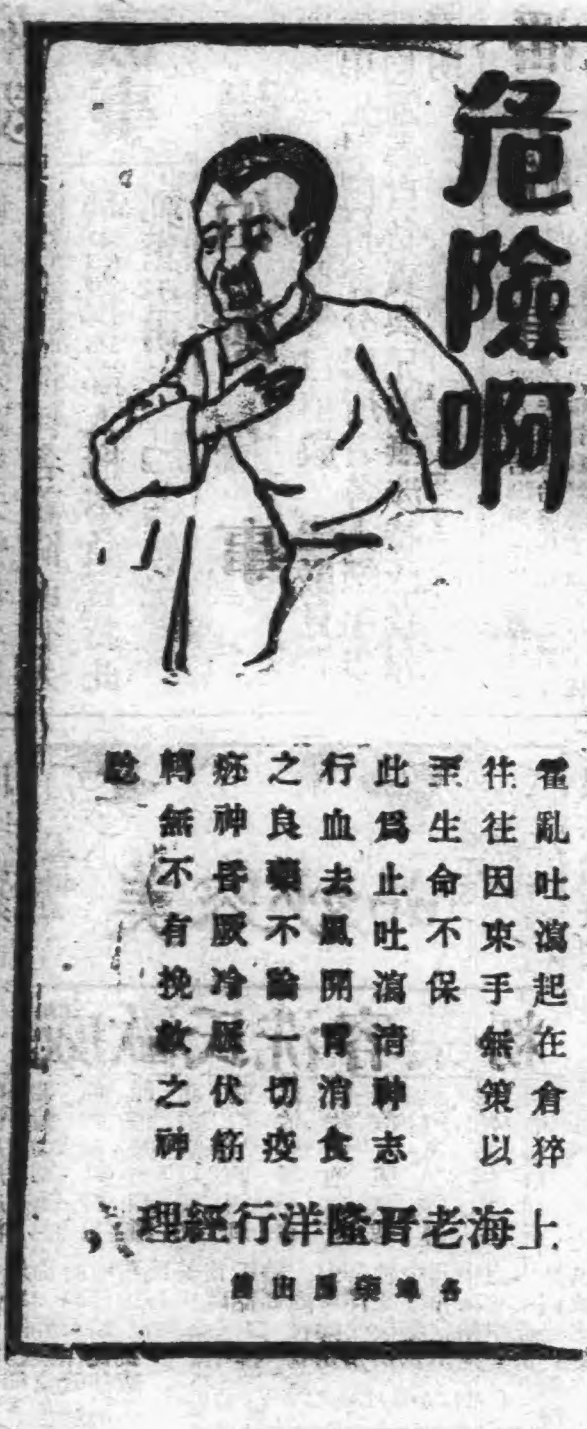 危險啊
霍亂吐瀉起在倉猝
往往因束手無策以
至生命不保
此爲止吐瀉淸神志
行血去風開胃消食
之良藥不論一切疫
痧神昏厥冷脈伏筋
轉無不有挽救之神
騐
上海老晋隆洋行經理
各埠藥房出售